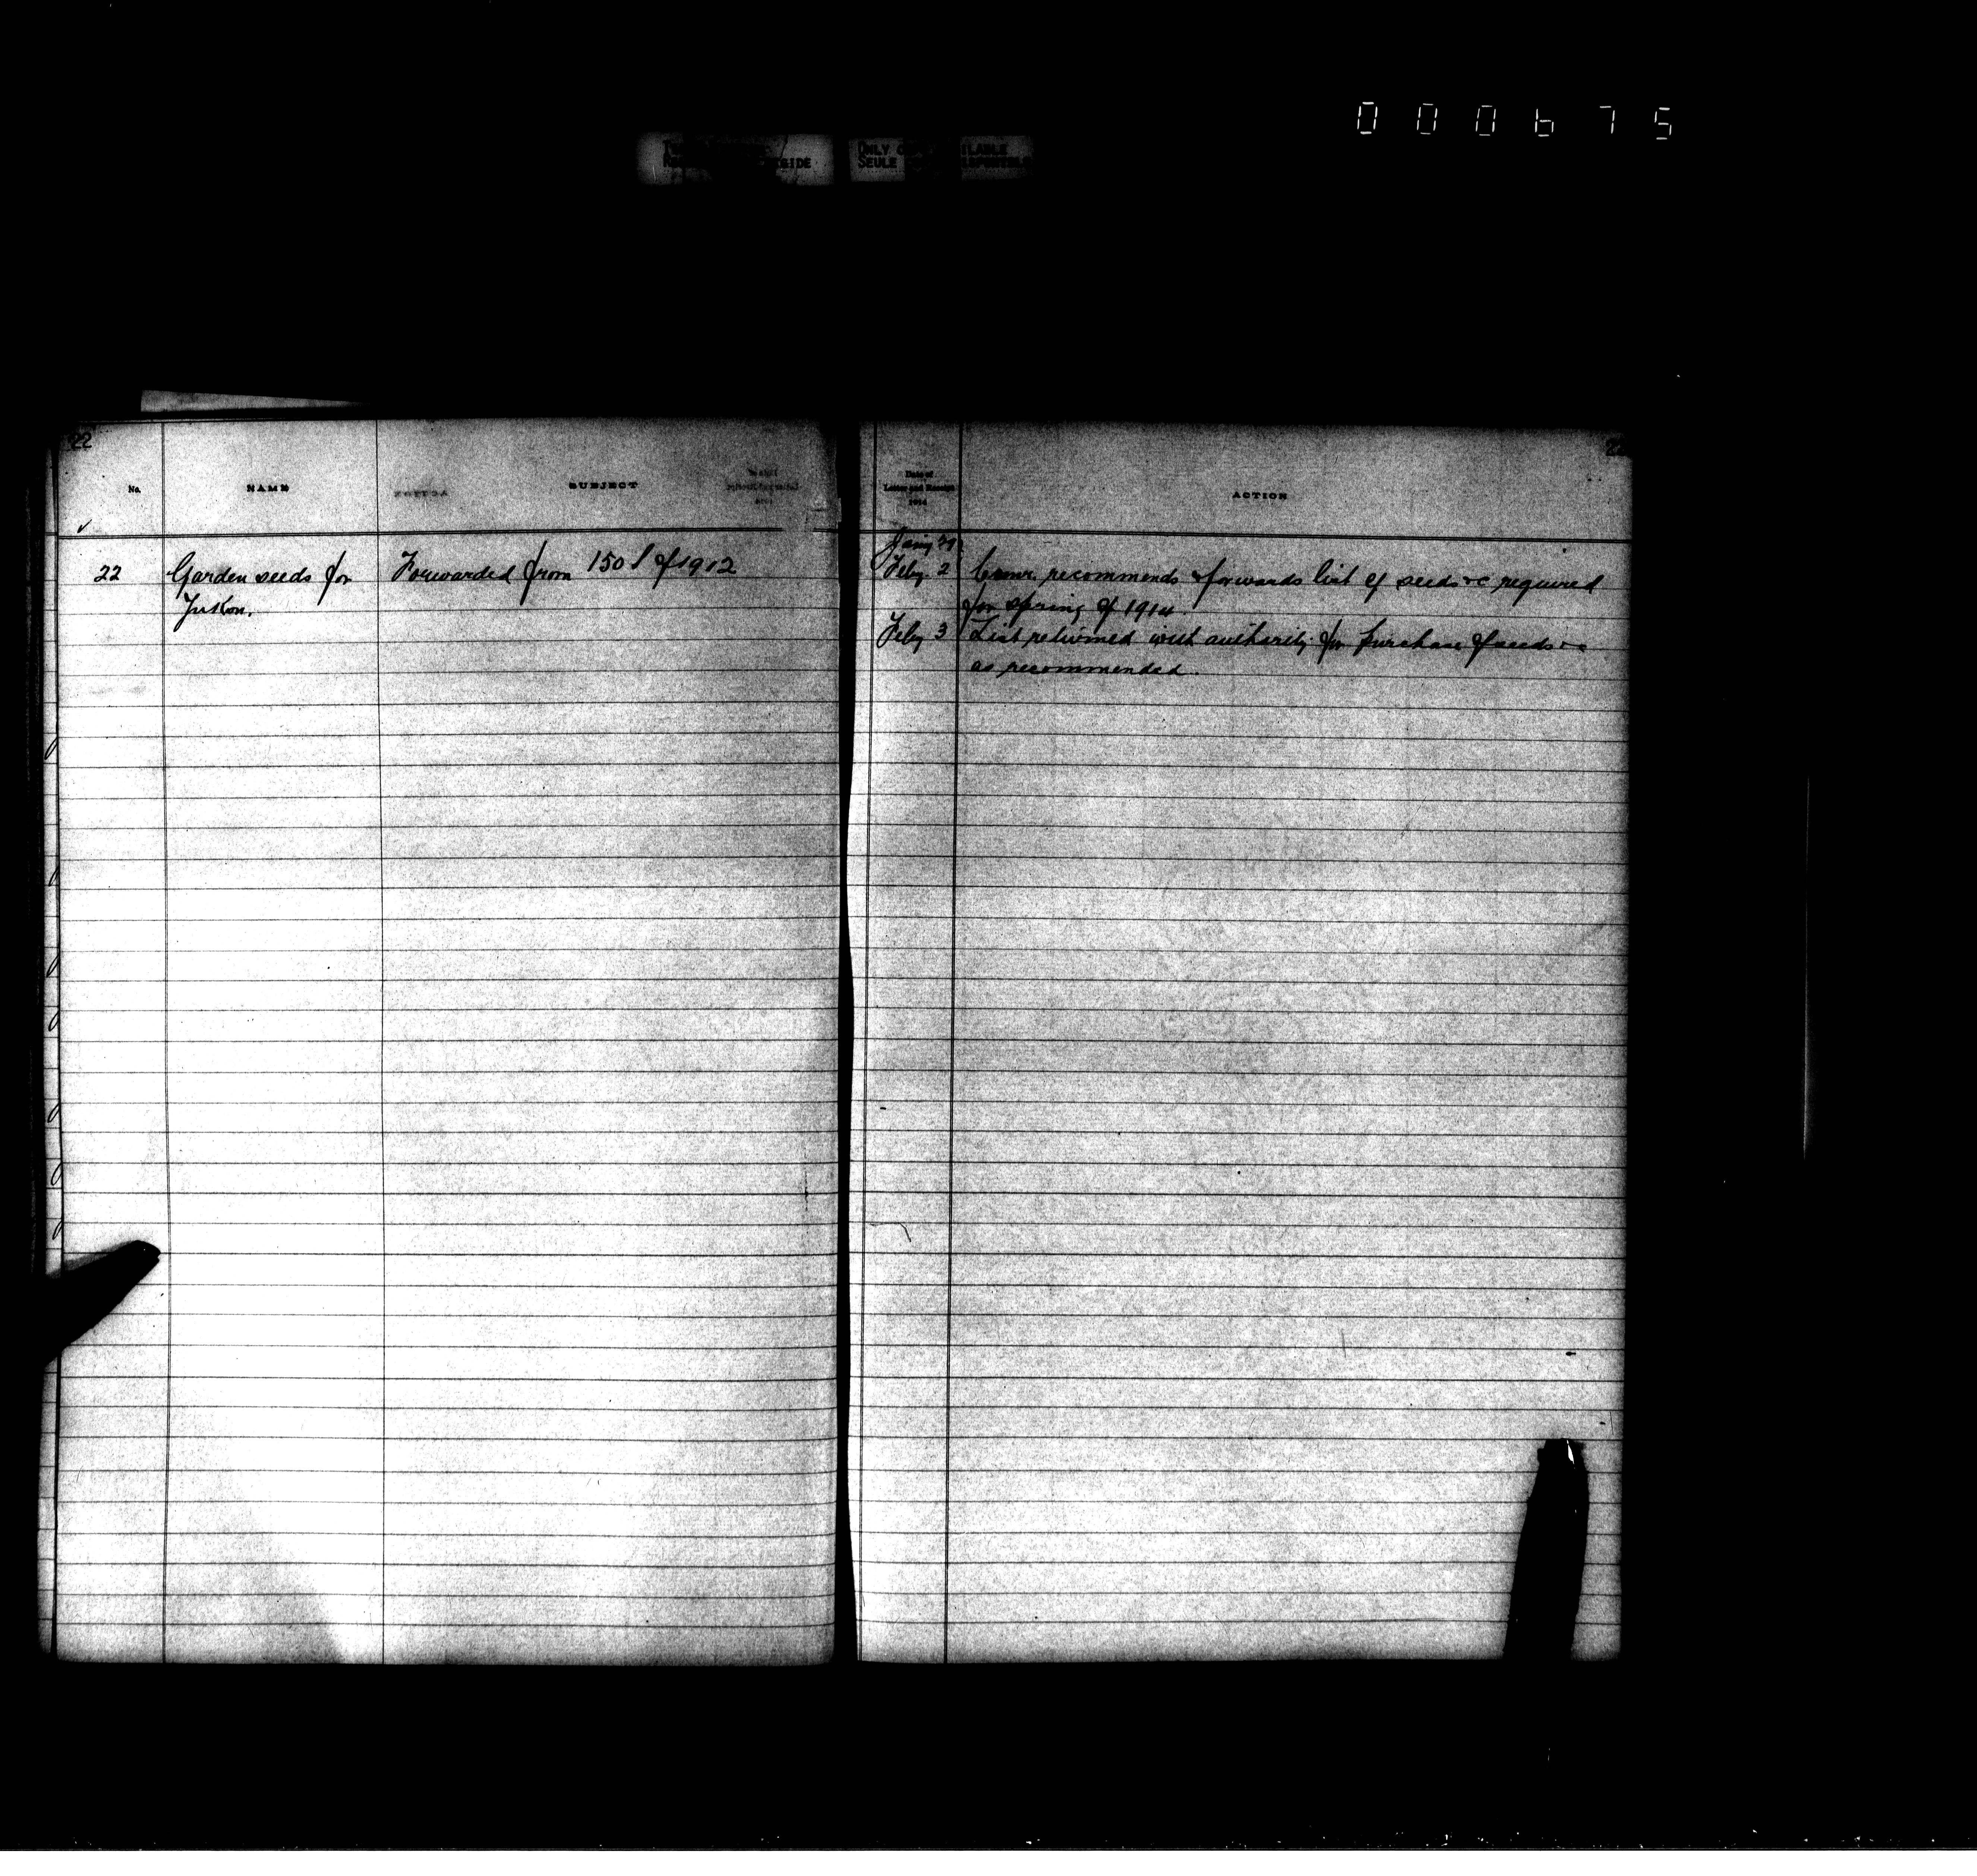 000675
ONLY
SEULE
22
No. NAME SUBJECT
22 Garden seeds for Forwarded from 150 1 of 1912
Yukon.
Date of
Letter and Receipt
1914
ACTION
Feby. 2 Comr. recommends & forwards list of seeds &c required
for spring of 1914.
Feby 3 List returned with authority for purchase of seeds &c
as recommended.